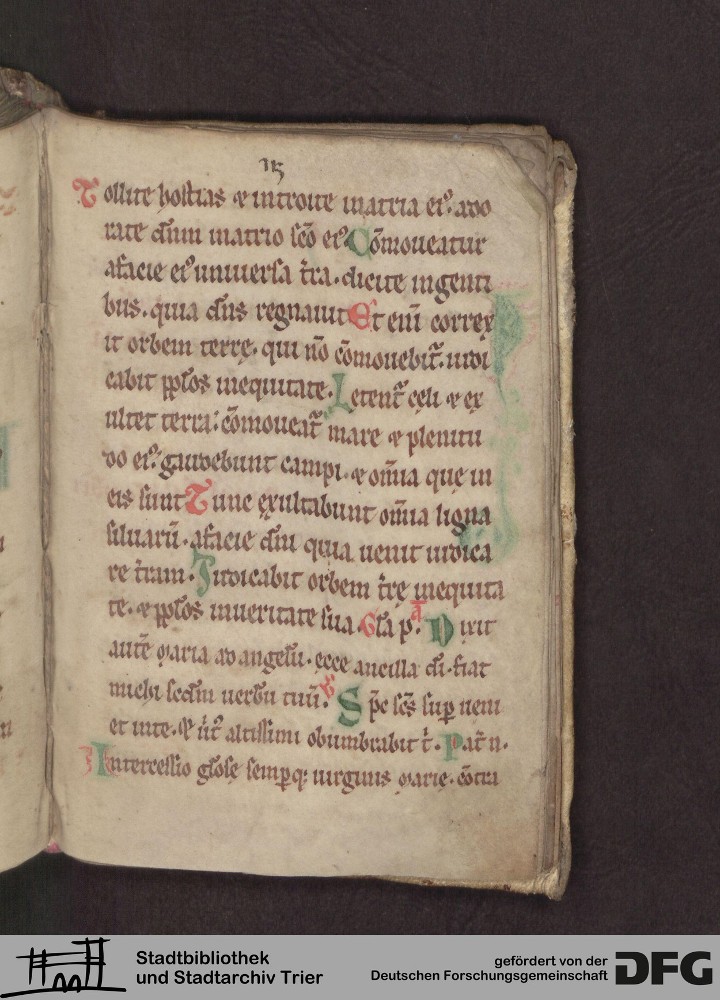 15
Tollite hostias ⁊ introite inatria ei᷒. ado
rate dn̄m inatrio sc̄o ei᷒. Cōmoueatur
afacie ei᷒ uniuersa t̄ra. dicite ingenti
bus. quia dn̄s regnauit Et eni̅ correx
it orbem terrę. qui nō cōmouebit̄. iudi
cabit pp̄los inequitate. Letent̄ cęli ⁊ ex
ultet terra. cōmoueat̄ mare ⁊ plenitu
do ei᷒. gaudebunt campi. ⁊ om̄ia que in
eis sunt Tunc exultabunt om̄ia ligna
siluarū. afacie dn̄i quia uenit iudica
re t̄ram. Iudicabit orbem t̄rę inequita
te. ⁊ pp̄los inueritate sua. Gl̄a p. a̅ Dixit
autē maria ad angelū. ecce ancilla dn̄i. fiat
michi scdm̄ uerbū tuū. Sp̄c sc̄s sup̄ ueni
et inte. ⁊ uirt᷒ altissimi obumbrabit t̄. Pat̄ n.
Intercessio gl̄ose semperq; uirginis marie. cōtra
Stadtbibliothek
und Stadtarchiv Trier
gefördert von der
Deutschen Forschungsgemeinschaft
DFG